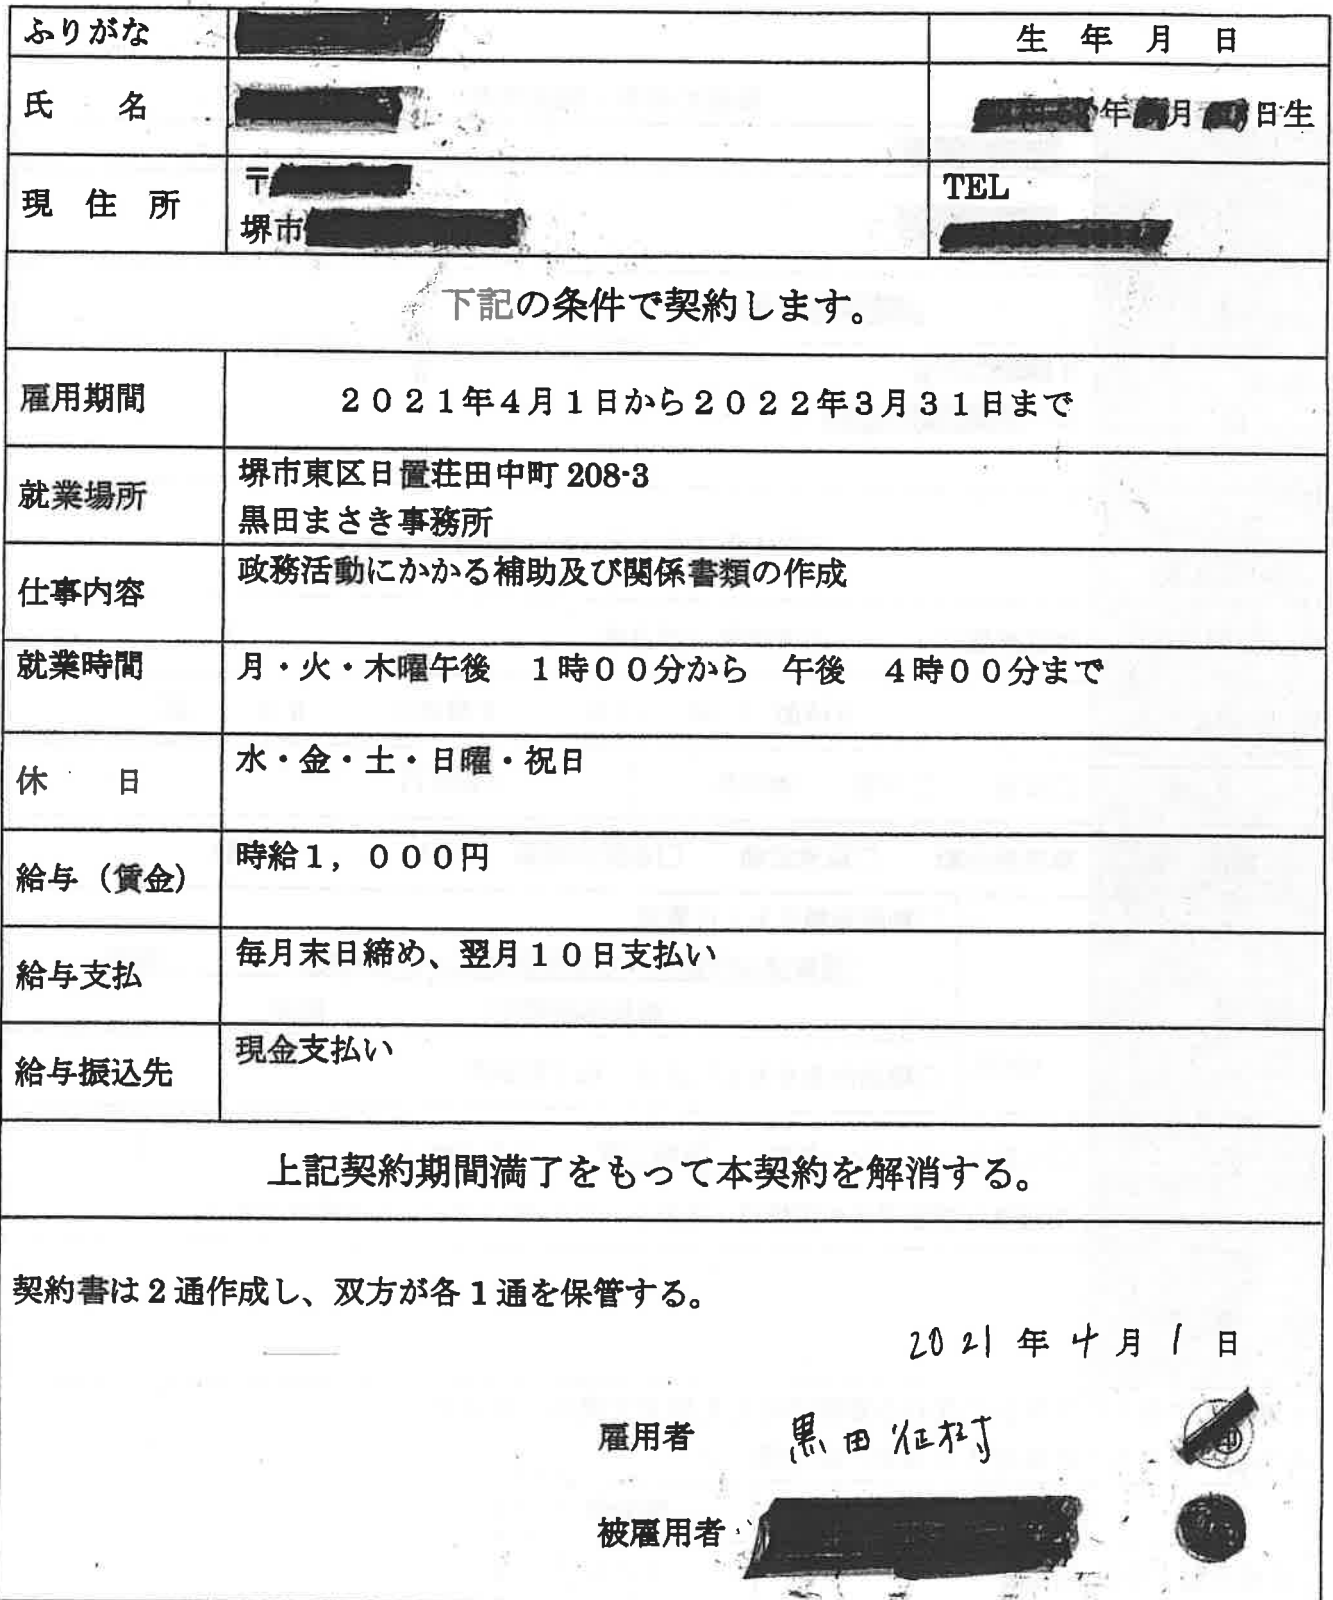 ふりがな
生 年 月 日
氏 名
年 月 日生
現 住 所
〒
堺市
TEL
下記の条件で契約します。
雇用期間
2021年4月1日から2022年3月31日まで
就業場所
堺市東区日置荘田中町 208-3
黒田まさき事務所
仕事内容
政務活動にかかる補助及び関係書類の作成
就業時間
月・火・木曜午後 1時00分から 午後 4時00分まで
休 日
水・金・土・日曜・祝日
給与（賃金）
時給1，000円
給与支払
毎月末日締め、翌月10日支払い
給与振込先
現金支払い
上記契約期間満了をもって本契約を解消する。
契約書は2通作成し、双方が各1通を保管する。
2021 年 4 月 1 日
雇用者 黒田征樹
被雇用者